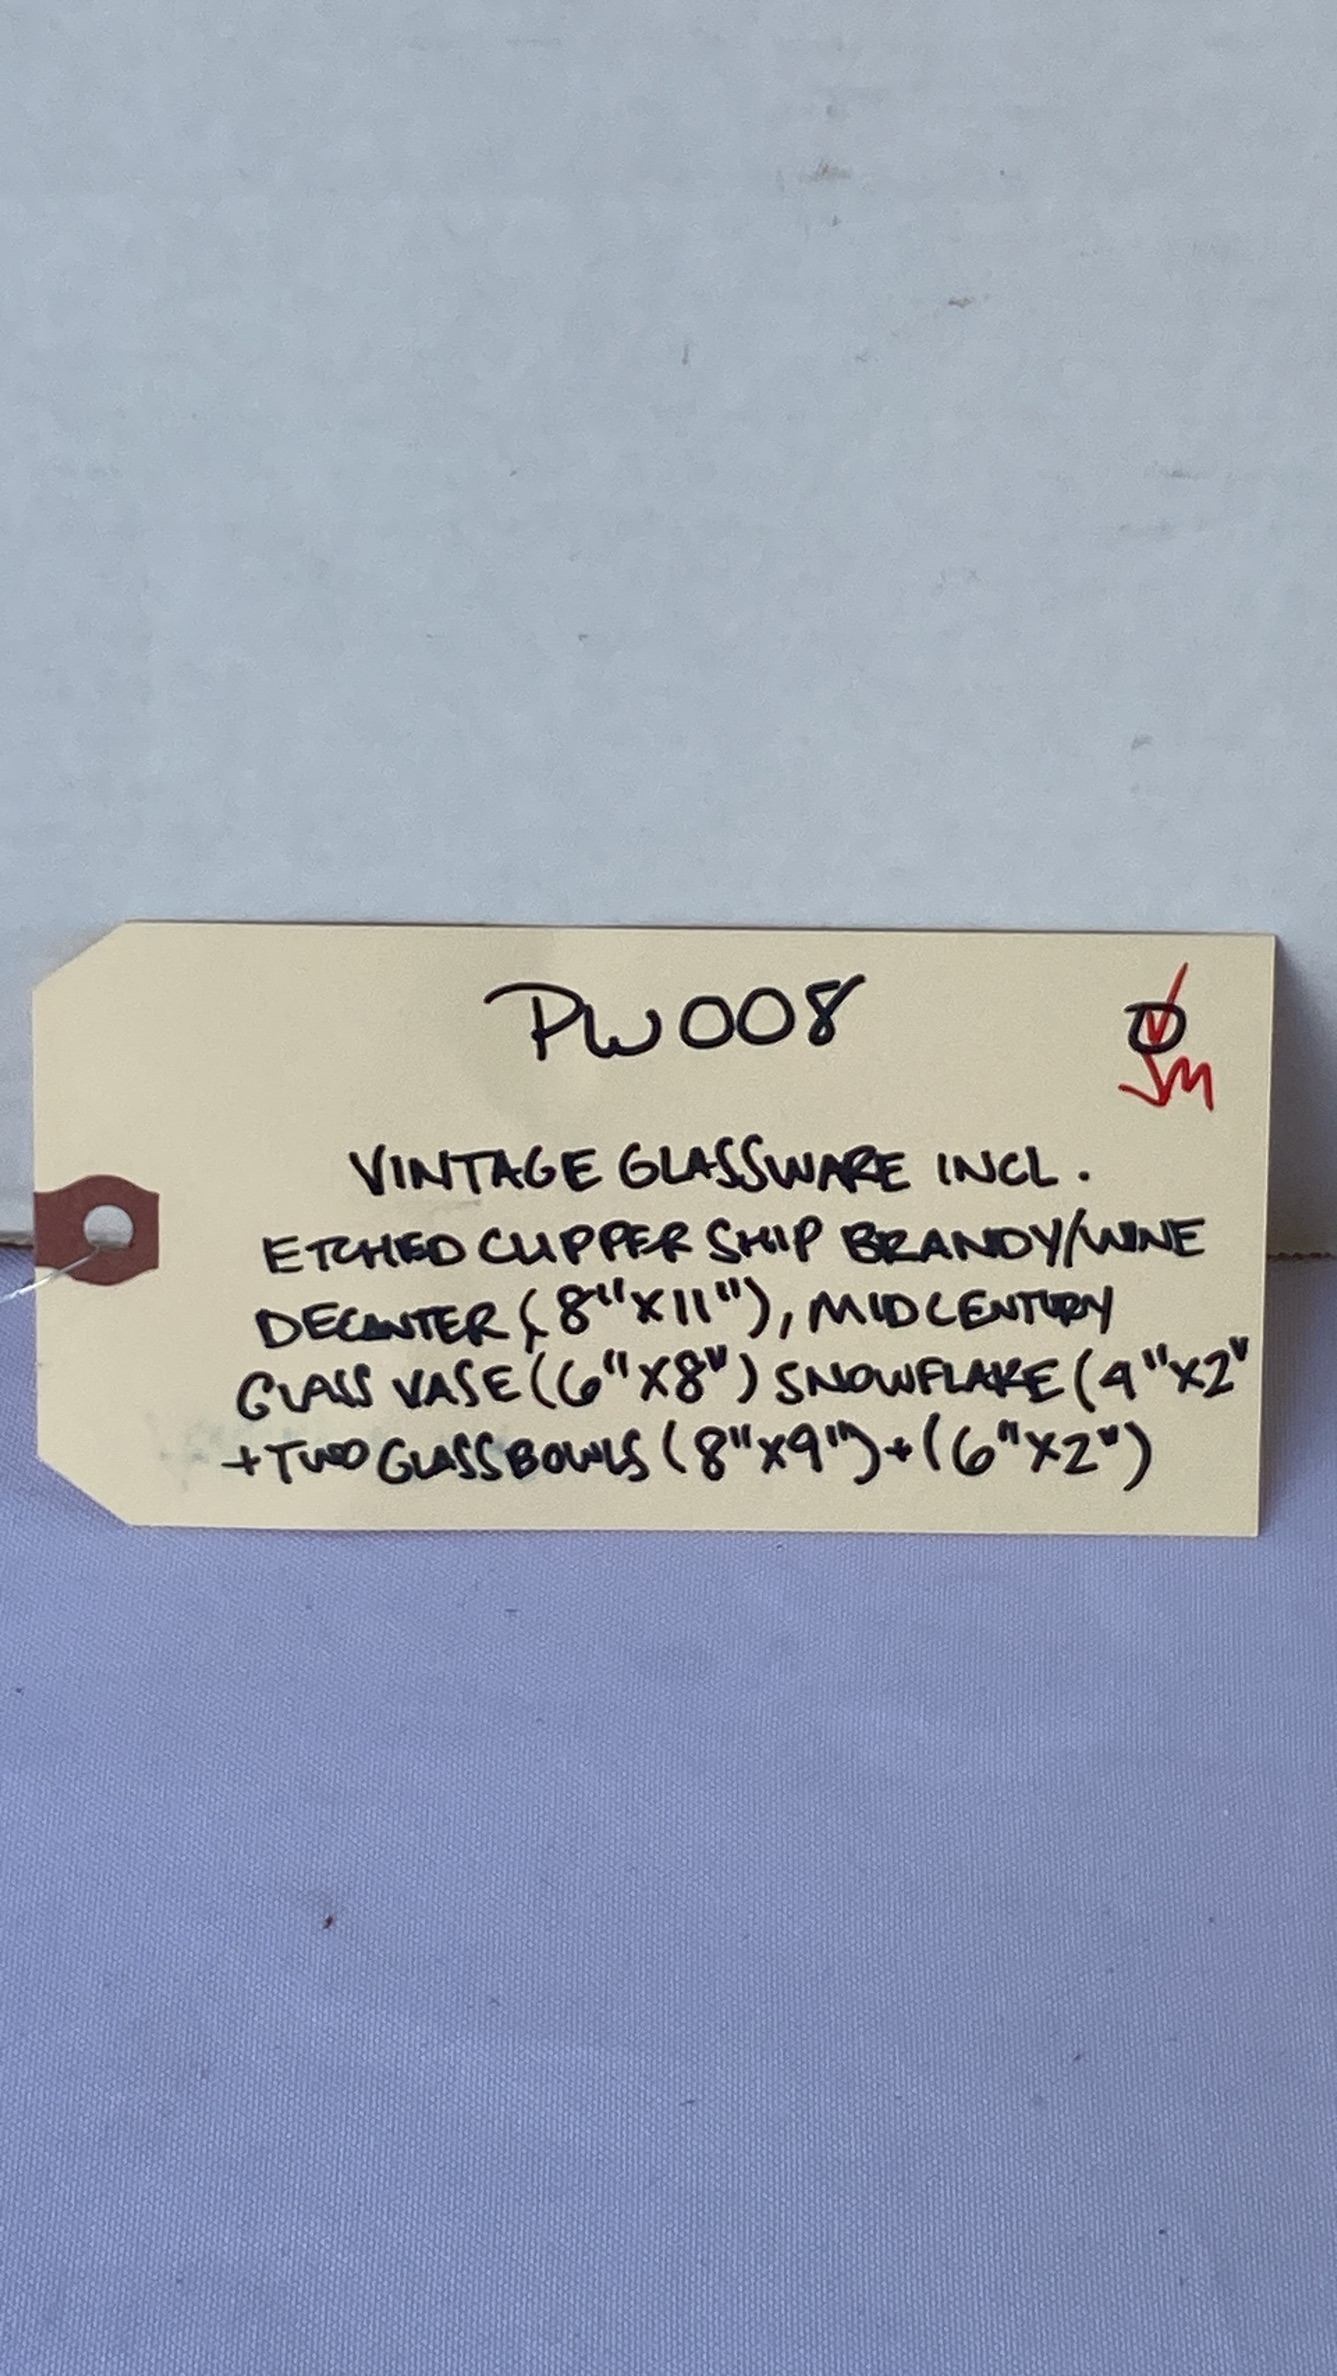 PW008
JM
VINTAGE GLASSWARE INCL.
ETCHED CLIPPER SHIP BRANDY/WINE
DECANTER (8"X11"), MIDCENTURY
GLASS VASE (6"X8") SNOWFLAKE (4"X2"
+ TWO GLASS BOWLS (8"X9") + (6"X2")